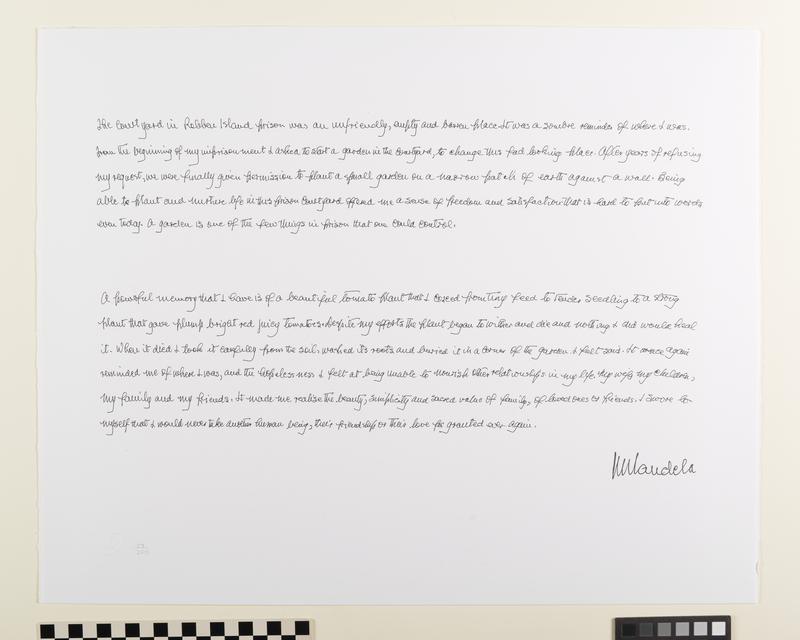 The courtyard in Robben Island prison was an unfriendly, empty and barren place. It was a sombre reminder of where I was.
From the beginning of my imprisonment I asked to start a garden in the courtyard, to change this sad looking place. After years of refusing
my request, we were finally given permission to plant a small garden on a narrow patch of earth against a wall. Being
able to plant and nurture life in this prison courtyard offered me a sense of freedom and satisfaction that is hard to put into words
even today. A garden is one of the few things in prison that one could control.
A powerful memory that I have is of a beautiful tomato plant that I coxed from tiny seed to tender seedling to a strong
plant that gave plump bright red juicy tomatoes. Despite my efforts the plant began to wither and die and nothing I did would heal
it. When it died I took it carefully from the soil, washed it's roots and buried it in a corner of the garden. I felt sad. It once again
reminded me of where I was, and the hopelessness I felt at being unable to nourish other relationships in my life, my wife, my children,
my family and my friends. It made me realise the beauty, simplicity and sacred value of family, of loved ones or friends. I swore to
myself that I would never take another human being, their friendship or their love for granted ever again.
NMandela